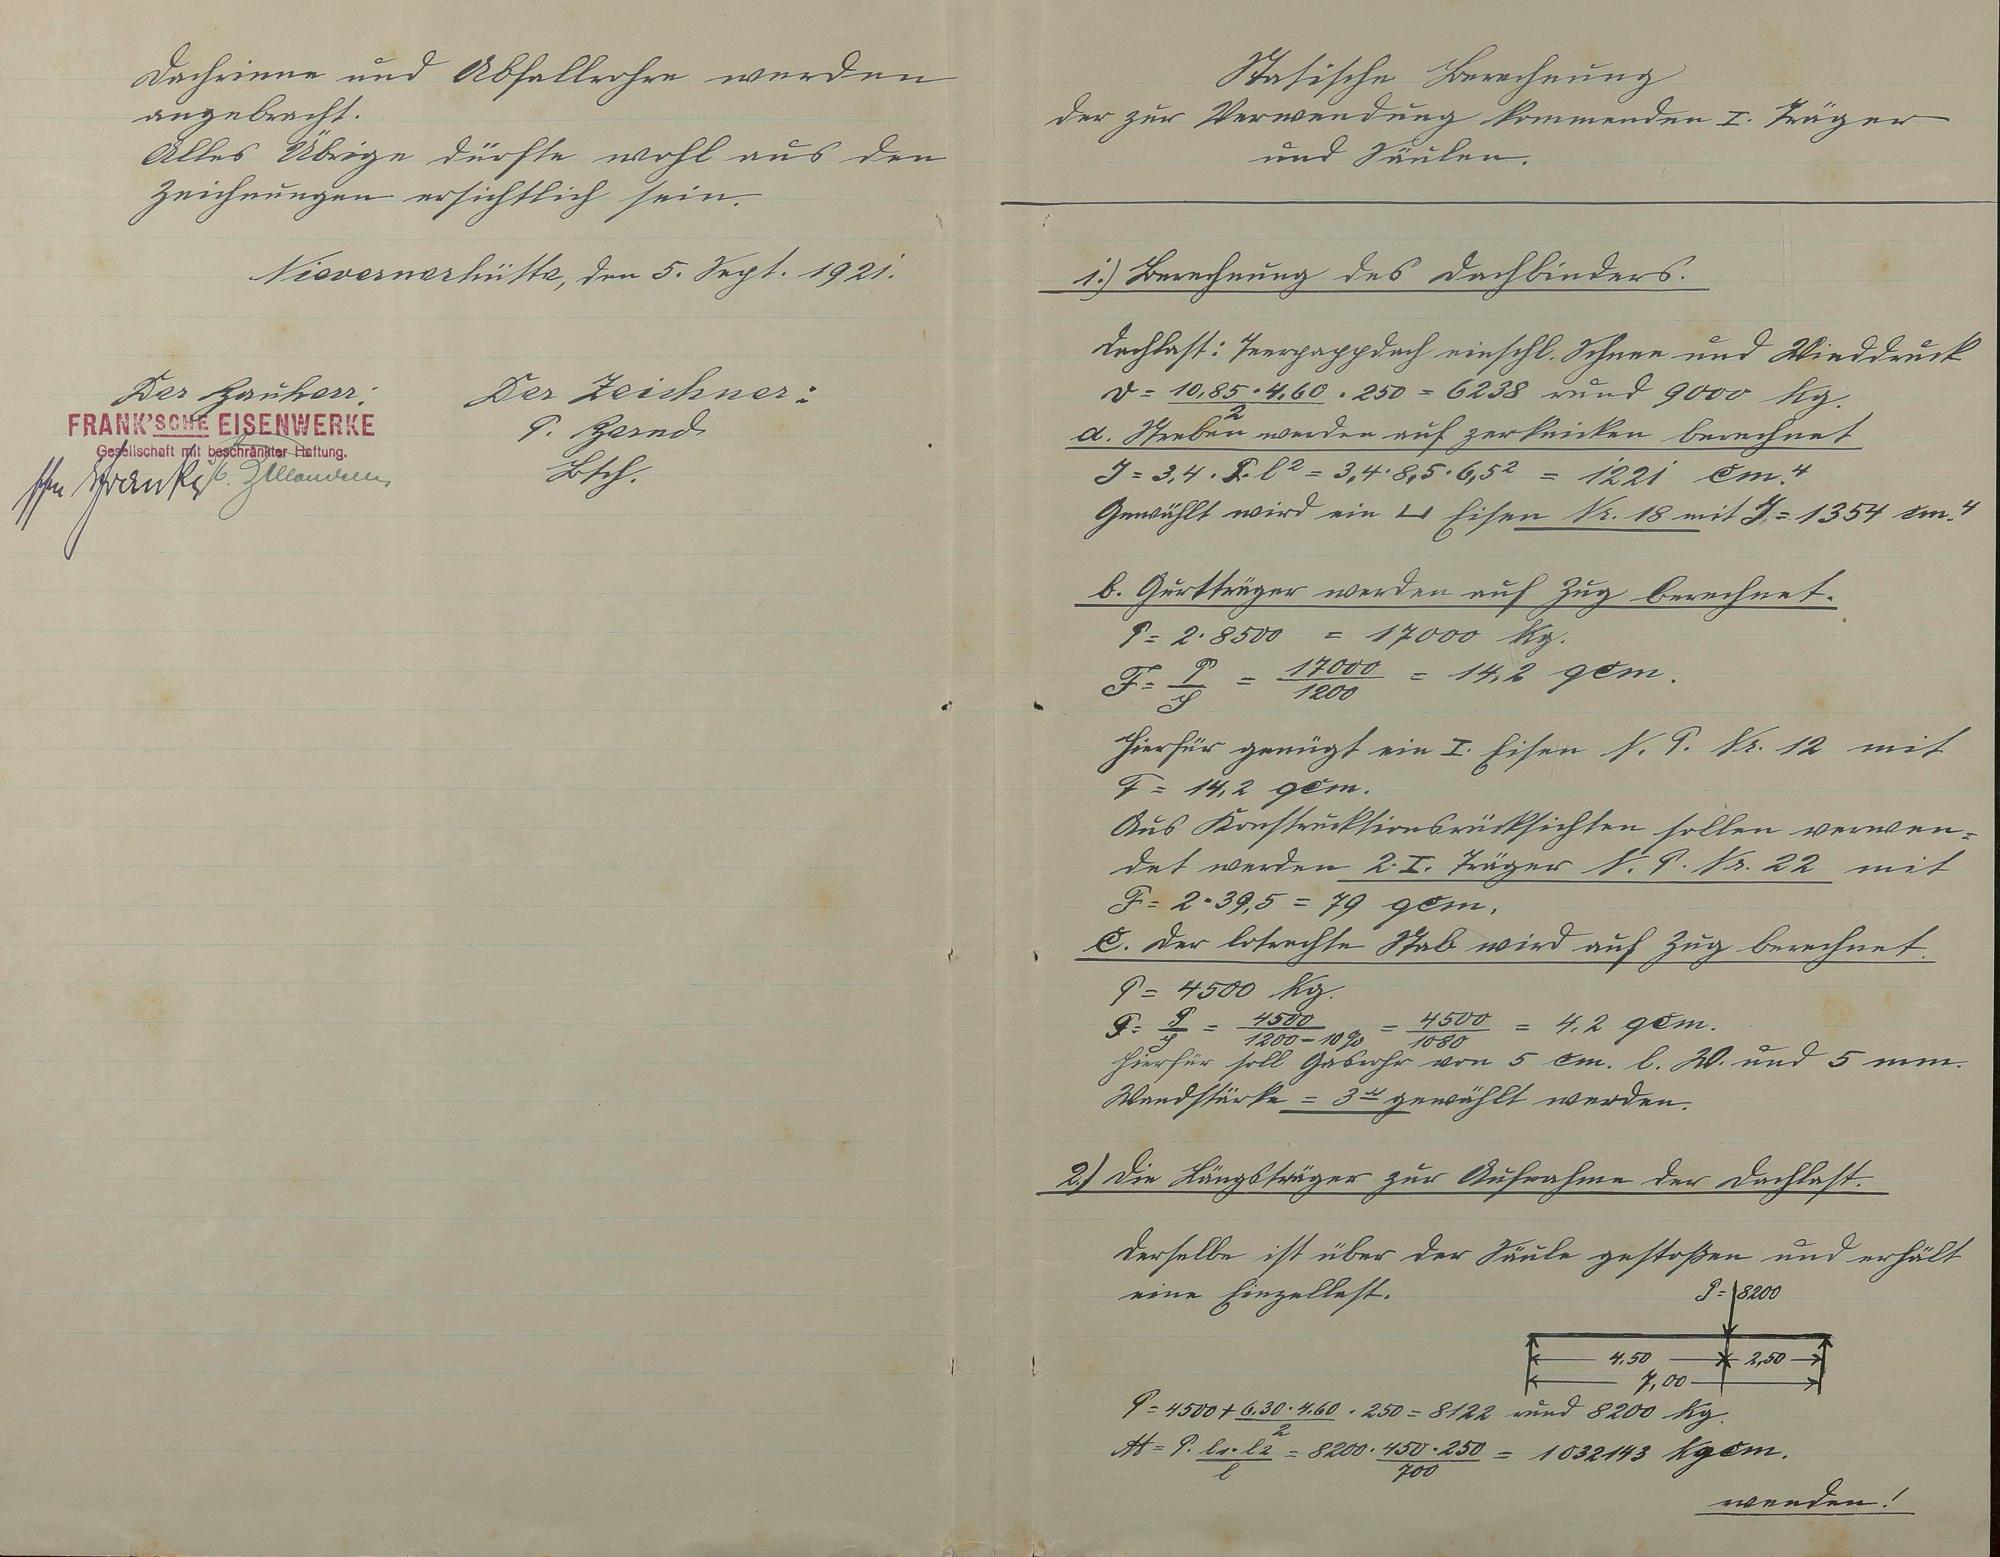 Dachrinne und Abfallrohre werden
angebracht.
Alles Übrige dürfte wohl aus den
Zeichnungen ersichtlich sein.
Nievernerhütte, den 5. Sept. 1921.
Der Bauherr:
FRANK'SCHE EISENWERKE
Gesellschaft mit beschränkter Haftung.
Der Zeichner:
Btch.
Statische Berechnung
der zur Verwendung kommenden I. Träger
und Säulen.
1.) Berechnung des Dachbinders.
Dachlast: Teerpappdach einschl. Schnee und Winddruck
D = 10,85 · 4,60 / 2 · 250 = 6238 rund 9000 kg.
a. Streben werden auf zerknicken berechnet
J = 3,4 · P. l² = 3,4 · 8,5 · 6,5² = 1221 cm.⁴
Gewählt wird ein ⊔ Eisen Nr. 18 mit J = 1354 cm.⁴
b. Gurtträger werden auf Zug berechnet.
P = 2 · 8500 = 17000 kg.
F = P / S = 17000 / 1200 = 14,2 qcm.
Hierfür genügt ein I. Eisen N. P. Nr. 12 mit
F = 14,2 qcm.
Aus Konstruktionsrücksichten sollen verwen=
det werden 2. I. Träger N. P. Nr. 22 mit
F = 2 · 39,5 = 79 qcm.
C. Der lotrechte Stab wird auf Zug berechnet.
P = 4500 kg.
F = P / S = 4500 / 1200 – 10% = 4500 / 1080 = 4,2 qcm.
Hierfür soll Gasrohr von 5 cm. l. W. und 5 mm.
Wandstärke = 3" gewählt werden.
2.) Die Längsträger zur Aufnahme der Dachlast.
Derselbe ist über der Säule gestoßen und erhält
eine Einzellast.
P = 8200
4,50 2,50
7,00
P = 4500 + 6,30 · 4,60 / 2 · 250 = 8122 rund 8200 kg.
M = P. l₁ · l₂ / l = 8200 · 450 · 250 / 700 = 1032143 kgcm.
wenden!